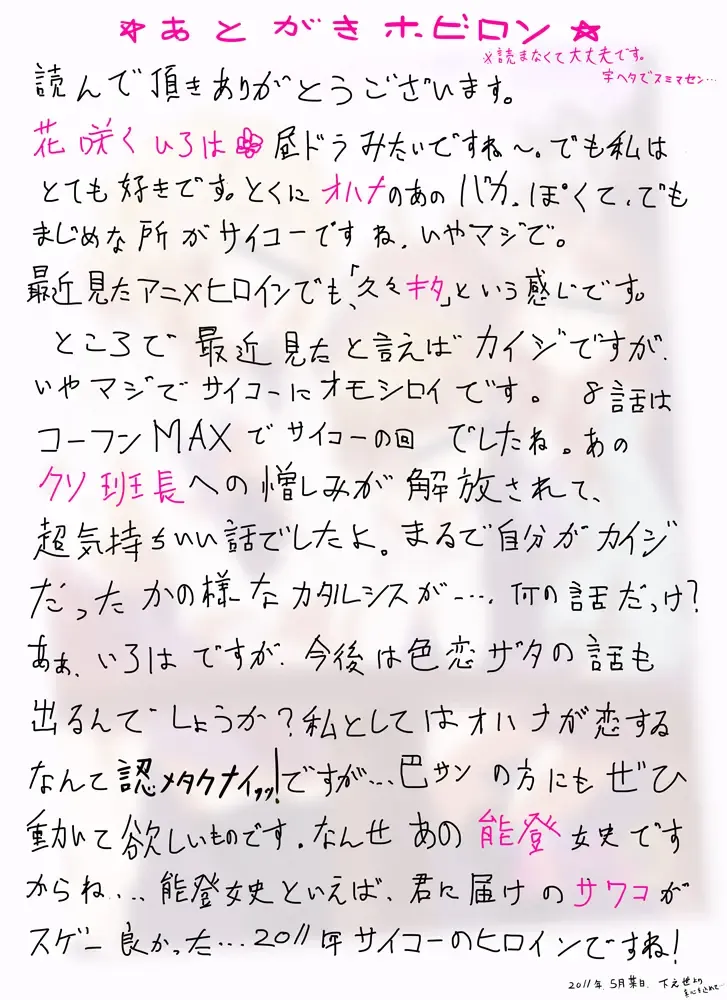 ☆あとがきホビロン☆
※読まなくて大丈夫です。
字ヘタでスミマセン…
読んで頂きありがとうございます。
花咲くいろは 昼ドラみたいですね〜。でも私は
とても好きです。とくにオハナのあのバカっぽくて、でも
まじめな所がサイコーですね、いやマジで。
最近見たアニメヒロインでも、「久々キタ」という感じです。
ところで最近見たと言えばカイジですが、
いやマジでサイコーにオモシロイです。8話は
コーフンMAXでサイコーの回でしたね。あの
クソ班長への憎しみが解放されて、
超気持ちいい話でしたよ。まるで自分がカイジ
だったかの様なカタルシスが…、何の話だっけ?
あぁ、いろはですが、今後は色恋ザタの話も
出るんでしょうか?私としてはオハナが恋する
なんて認メタクナイッッ!ですが…巴サンの方にもぜひ
動いて欲しいものです。なんせあの能登女史です
からね…、能登女史といえば、君に届けのサワコが
スゲー良かった…2011年サイコーのヒロインですね!
2011年 5月某日.